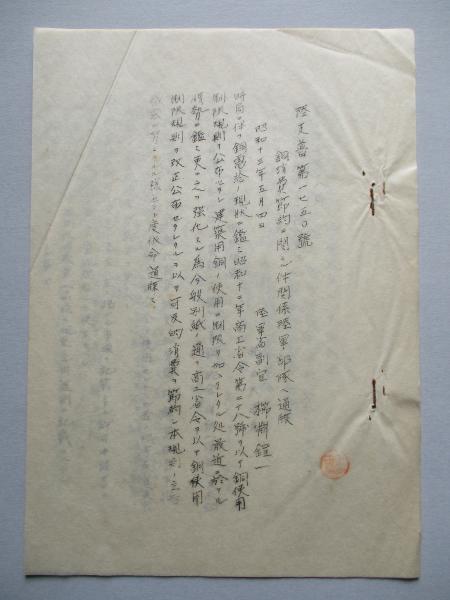 陸支普第一七五〇號
銅消費節約ニ關スル件關係陸軍部隊ヘ通牒
昭和十三年五月四日
陸軍省副官 櫛淵鍹一
時局ニ伴フ銅需給ノ現狀ニ鑑ミ昭和十二年商工省令第二十八號ヲ以テ銅使用
制限規則ヲ公布セラレ建築用銅ノ使用ニ制限ヲ加ヘラレタル処最近ニ於ケル
情勢ニ鑑ミ更ニ之ヲ強化スル為今般別紙ノ通リ商工省令ヲ以テ銅使用
制限規則ヲ改正公布セラレタルヲ以テ可及的消費ヲ節約シ本規則ノ
セラレ度依命通牒ス